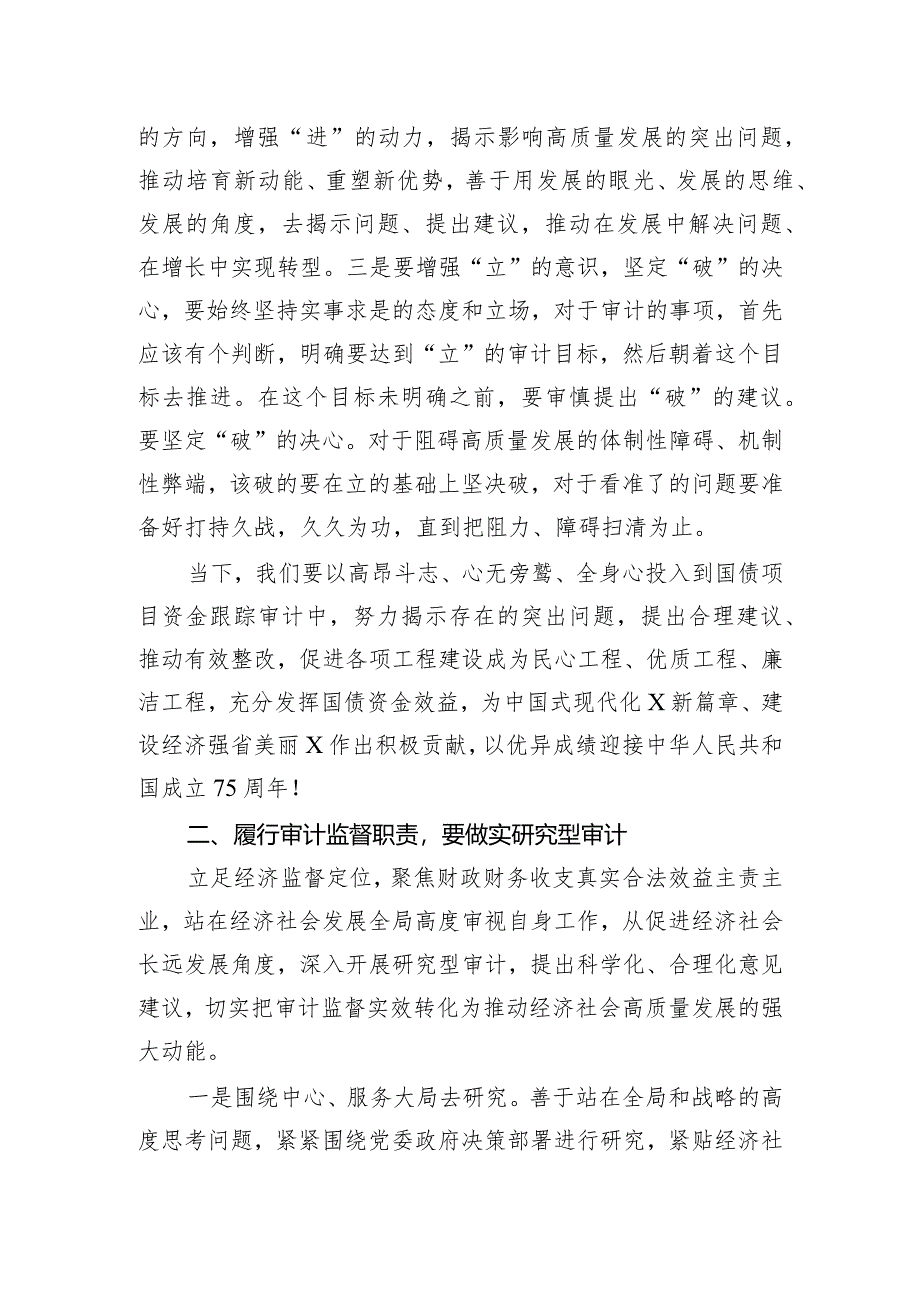 的方向，增强“进”的动力，揭示影响高质量发展的突出问题，
推动培育新动能、重塑新优势，善于用发展的眼光、发展的思维、
发展的角度，去揭示问题、提出建议，推动在发展中解决问题、
在增长中实现转型。三是要增强“立”的意识，坚定“破”的决
心，要始终坚持实事求是的态度和立场，对于审计的事项，首先
应该有个判断，明确要达到“立”的审计目标，然后朝着这个目
标去推进。在这个目标未明确之前，要审慎提出“破”的建议。
要坚定“破”的决心。对于阻碍高质量发展的体制性障碍、机制
性弊端，该破的要在立的基础上坚决破，对于看准了的问题要准
备好打持久战，久久为功，直到把阻力、障碍扫清为止。
当下，我们要以高昂斗志、心无旁鹜、全身心投入到国债项
目资金跟踪审计中，努力揭示存在的突出问题，提出合理建议、
推动有效整改，促进各项工程建设成为民心工程、优质工程、廉
洁工程，充分发挥国债资金效益，为中国式现代化X新篇章、建
设经济强省美丽X作出积极贡献，以优异成绩迎接中华人民共和
国成立75周年！
二、履行审计监督职责，要做实研究型审计
立足经济监督定位，聚焦财政财务收支真实合法效益主责主
业，站在经济社会发展全局高度审视自身工作，从促进经济社会
长远发展角度，深入开展研究型审计，提出科学化、合理化意见
建议，切实把审计监督实效转化为推动经济社会高质量发展的强
大动能。
一是围绕中心、服务大局去研究。善于站在全局和战略的高
度思考问题，紧紧围绕党委政府决策部署进行研究，紧贴经济社